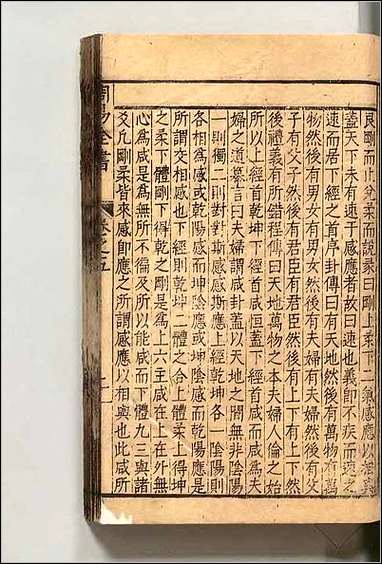 艮剛而止兌柔而說彖曰剛上柔下二氣感應以相與
蓋天下未有速于感應者故曰速也義即不疾而速之
速而居下經之首序卦傳曰有天地然後有萬物有萬
物然後有男女有男女然後有夫婦有夫婦然後有父
子有父子然後有君臣有君臣然後有上下有上下然
後禮義有所錯程傳曰天地萬物之本夫婦人倫之始
所以上經首乾坤下經首咸恒蓋下經首咸而咸爲夫
婦之道 言曰夫婦謂咸卦蓋以天地之間無非陰陽
一則獨二則對對斯感感斯應上經乾坤各一陰陽則
各相爲感或乾陽感而坤陰應或坤陰感而乾陽應是
所謂交相感也下經則乾坤二體之合上體柔上得坤
之柔下體剛下得乾之剛是爲上六主咸在上在外無
心爲咸是爲無所不徧及所以能咸而下體九三與諸
爻凡剛柔皆來感即應之所謂感應以相與也此咸所
周易全書
卷之五